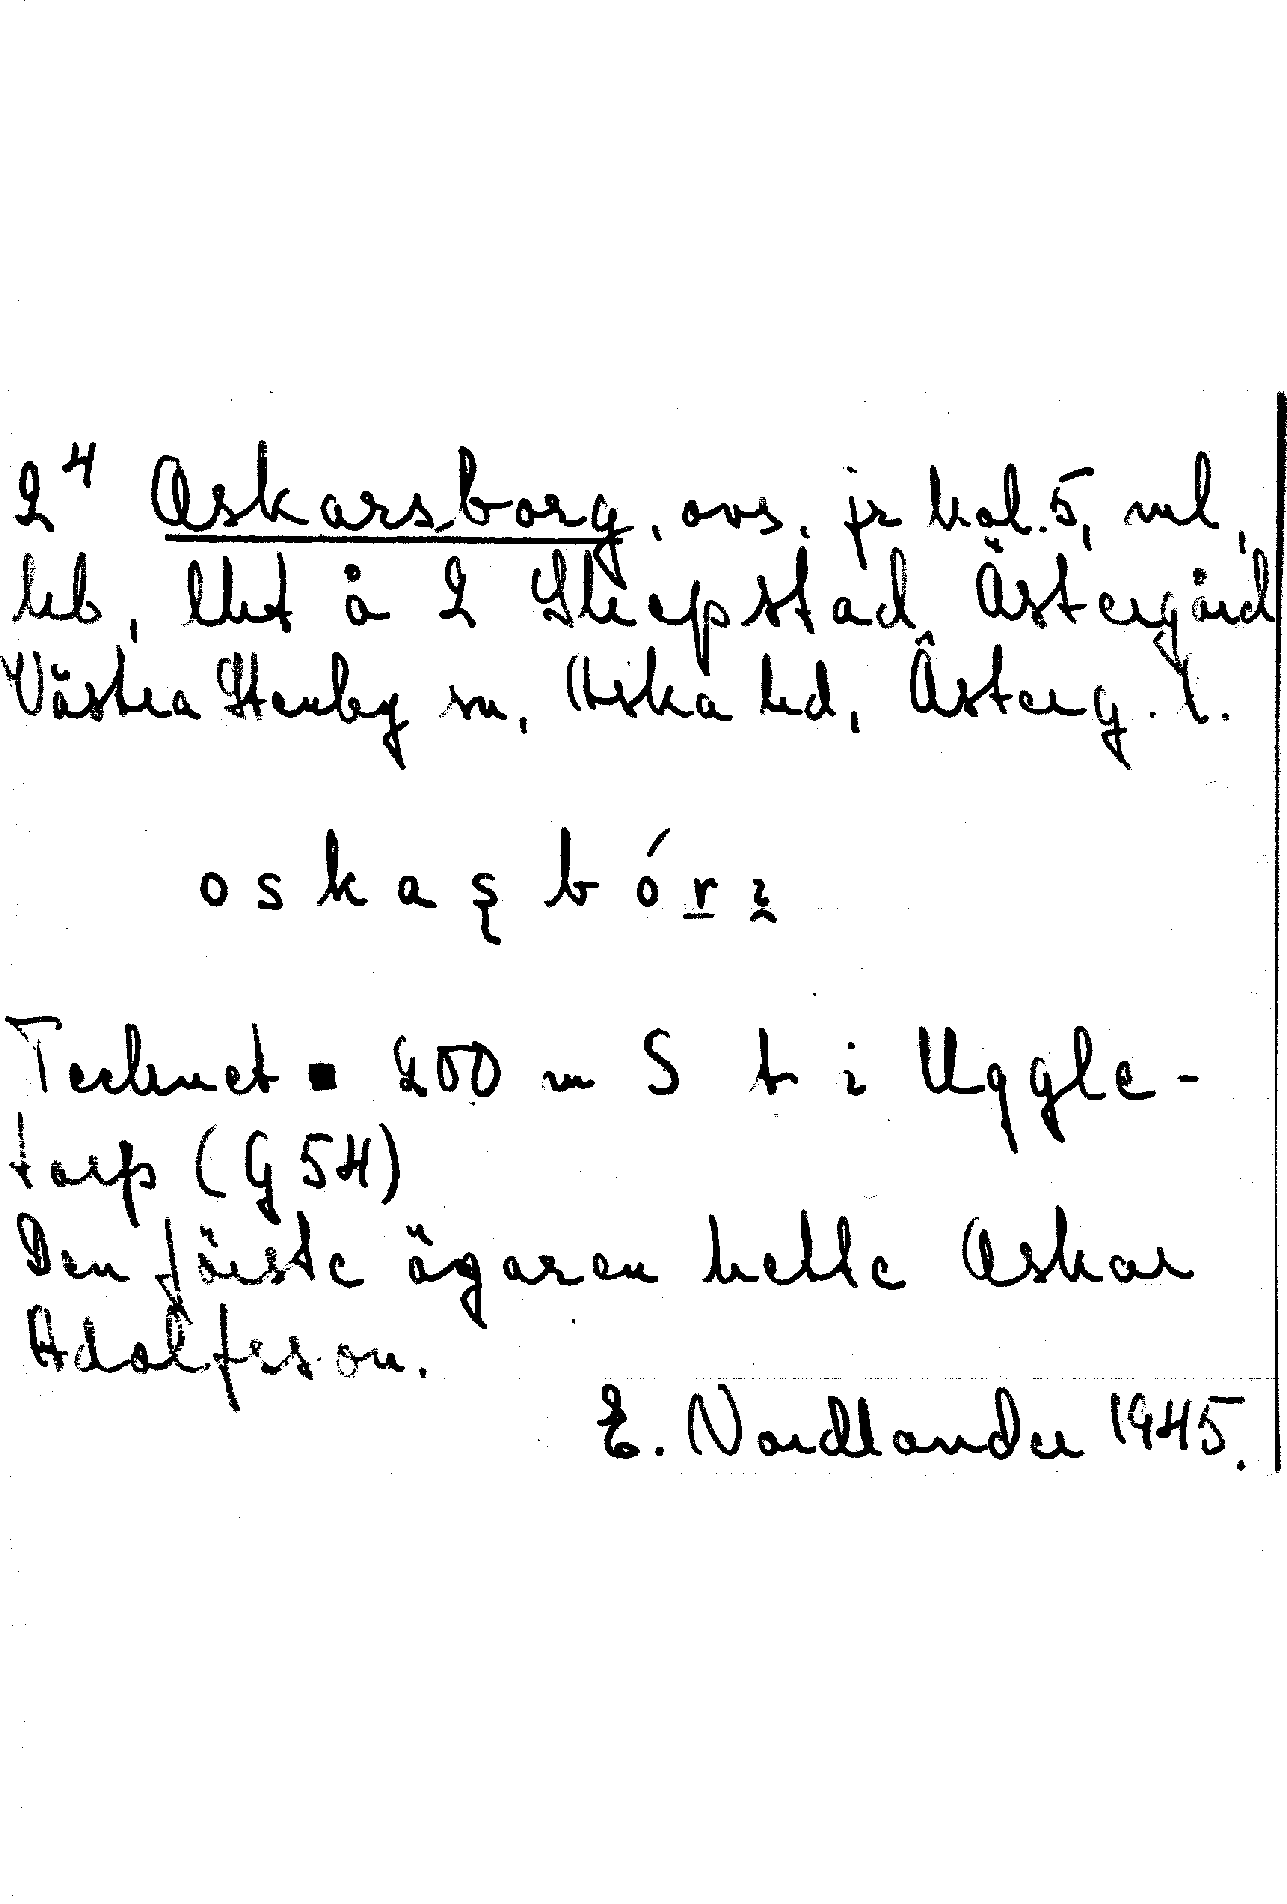 2⁴ Oskarsborg, avs. jr kol. 5, ml,
heb, lht å 2 Skepstad Östergård
Västra Stenby sn, Aska hd, Österg. l.
oskaşbórı
Tecknet ■ 200 m S t i Uggle-
torp (G 54)
Den förste ägaren hette Oskar
Adolfsson.
E. Nordlander 1945.